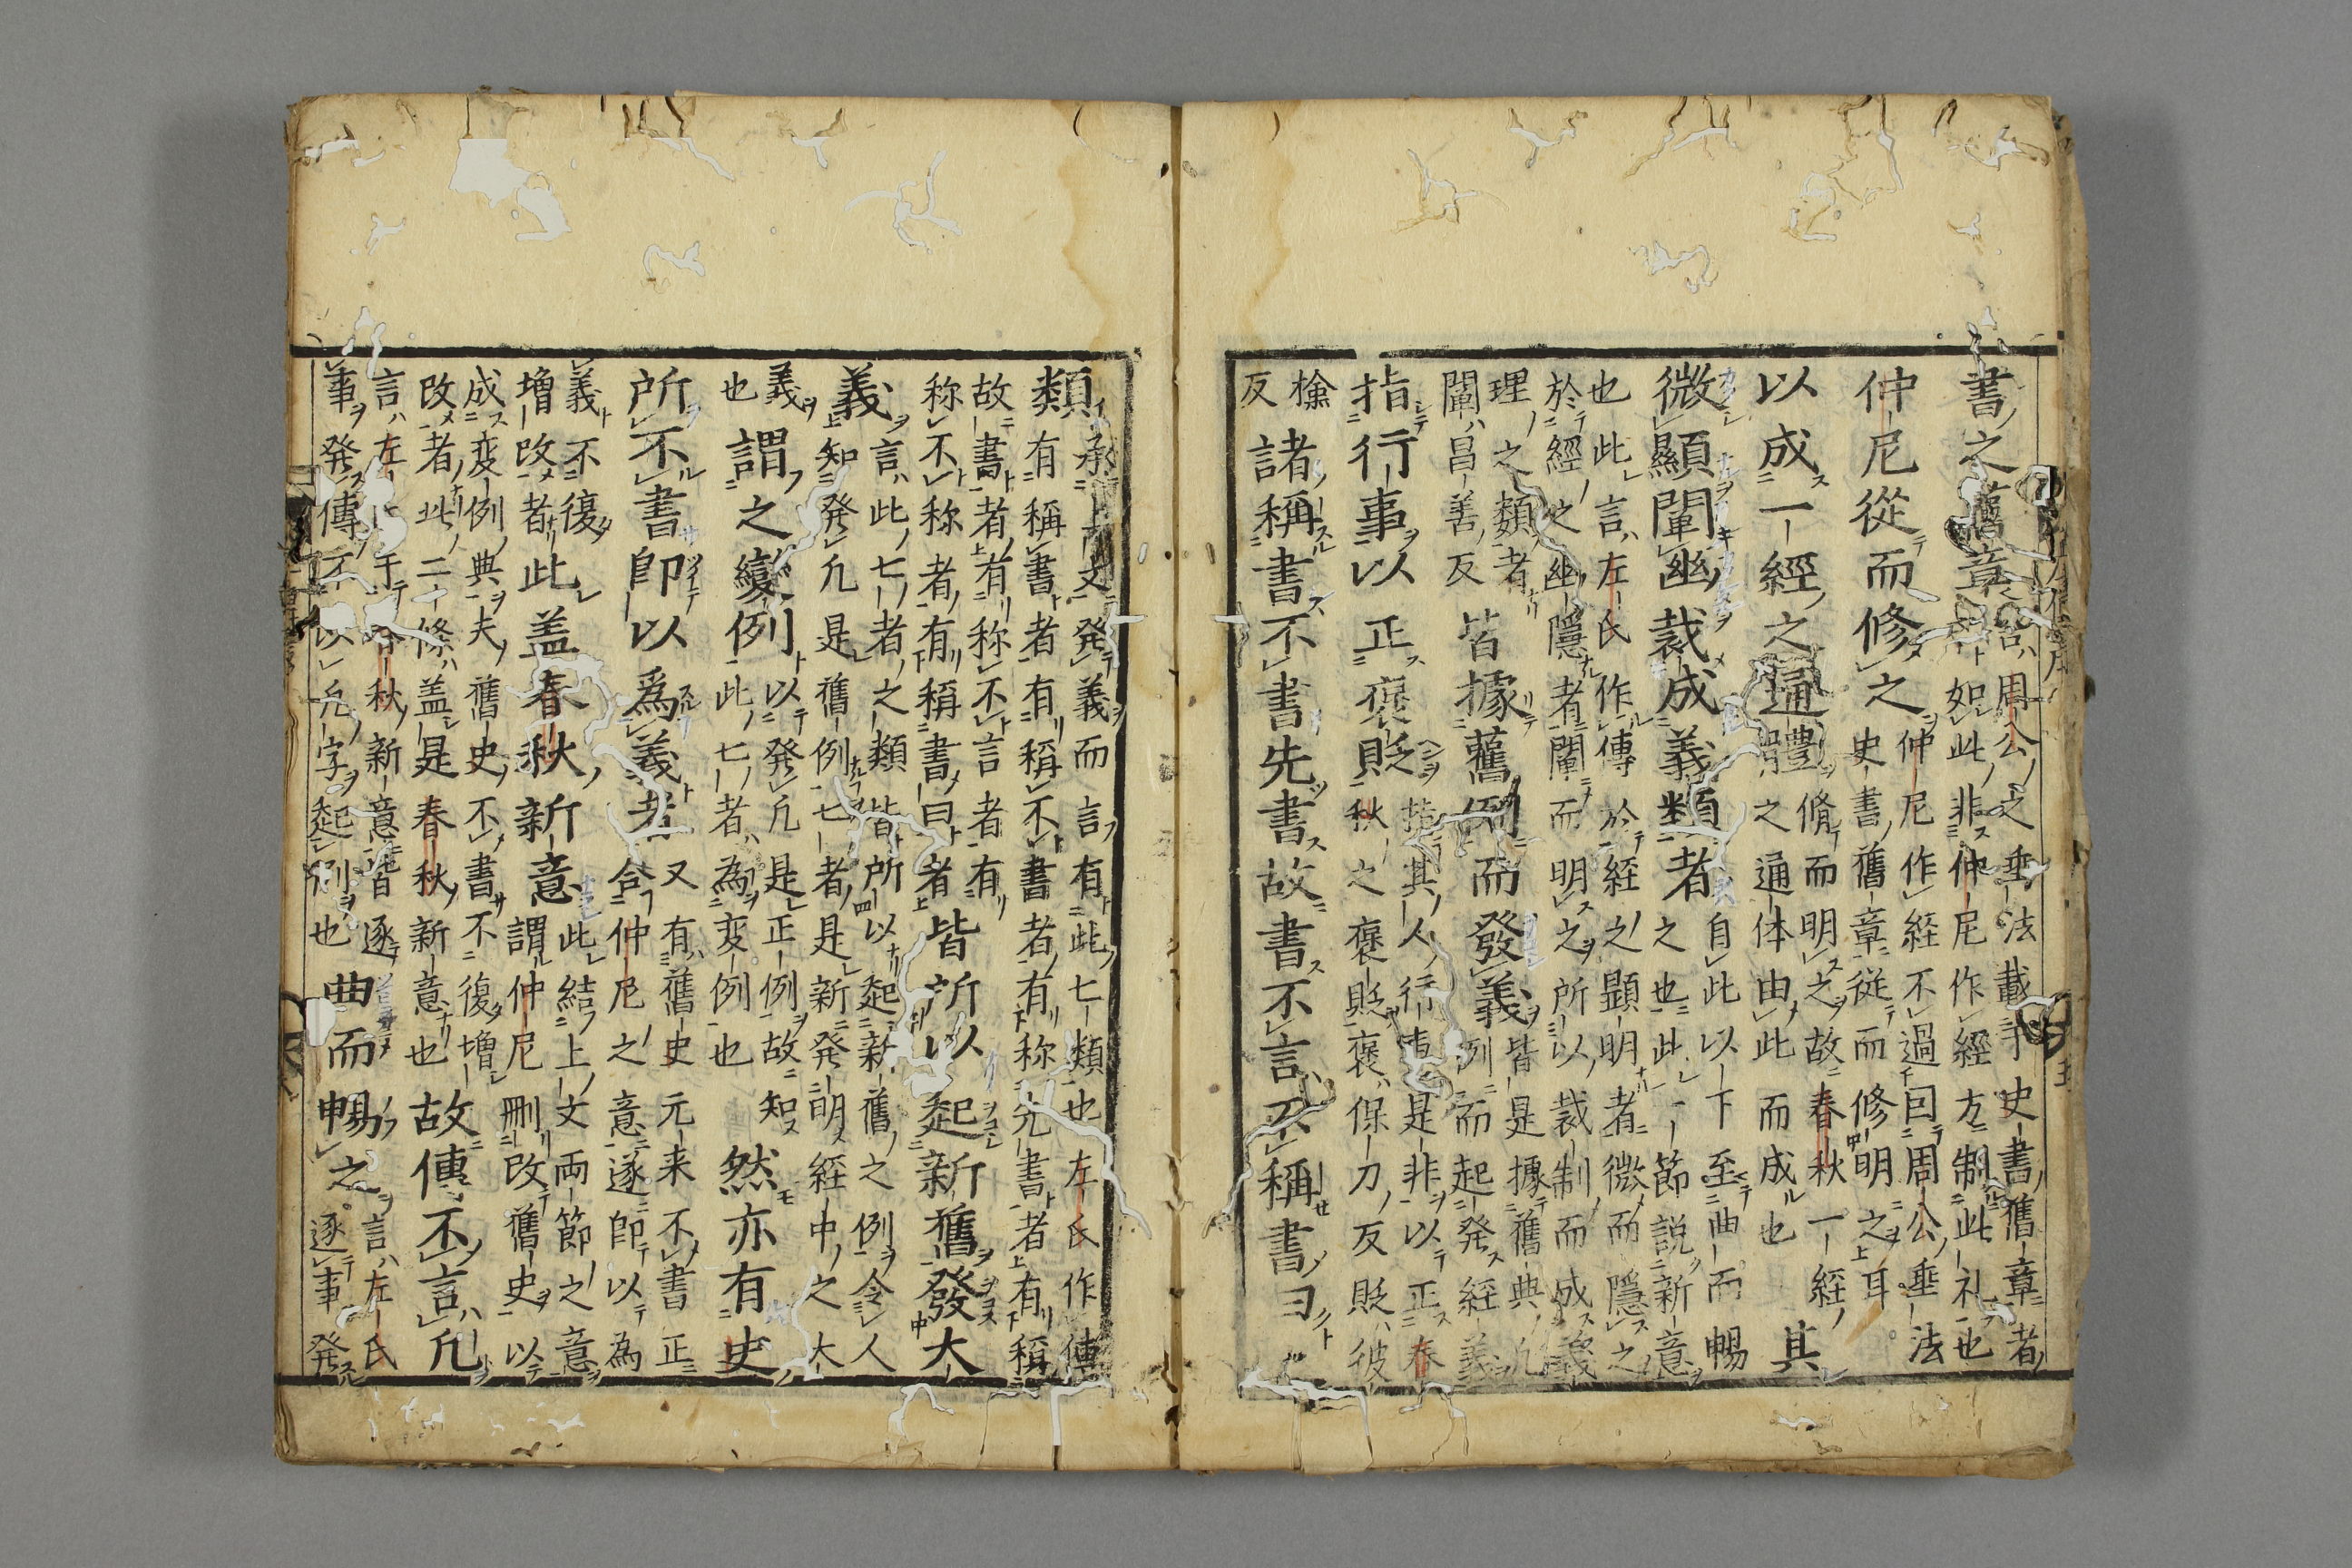 書之舊章
言周公之垂法載于史書舊章者
如此非仲尼作經方制此礼也
仲尼從而修之
仲尼作経不過因周公垂法
史書舊章從而修明之耳
以成一經之通體
脩而明之故春秋一經
之通体由此而成也
其
微顯闡幽裁成義類者
自此以下至曲而暢
之也此一節説新意
也此言左氏作傳於経之顕明者微而隠之
於經之幽隱者闡而明之所以裁制而成義
理之類者
闡昌善反
皆據舊例而發義
皆是據舊典凡
例而起発経義
指行事以正褒貶
指其人行事是非以正春
秋之褒貶褒保刀反貶彼
檢
反
諸稱書不書先書故書不言不稱書曰之
類
承上文発義而言有此七類也左氏作傳
有稱書者有稱不書者有称先書者有稱
故書者有称不言者有
称不称者有稱書曰者
皆所以起新舊發大
義
言此七者之類皆所以起新舊之例令人
知発凡是舊例七者是新発明経中之大
義
也
謂之變例
以発凡是正例故知
此七者為変例也
然亦有史
所不書即以爲義者
又有舊史元来不書正
合仲尼之意遂即以為
義不復
増改者
此盖春秋新意
此結上文両節之意
謂仲尼刪改舊史以
成変例典夫舊史不書不復増
改者此二條盖是春秋新意也
故傳不言凡
言左氏于春秋新意皆逐
事発傳不以凡字起例也
曲而暢之
言左氏
逐事発